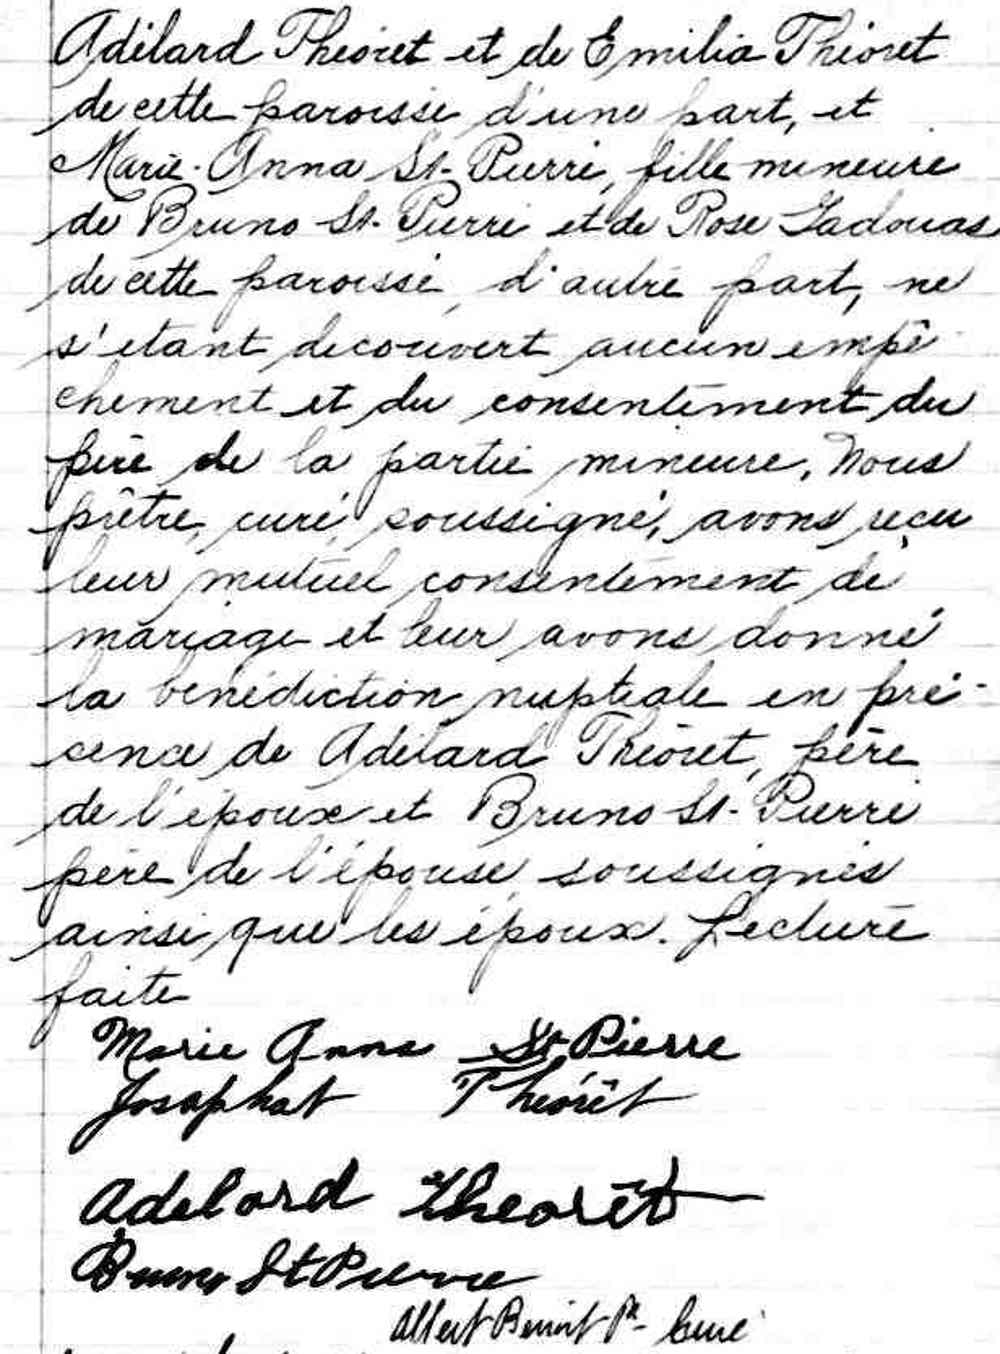 Adélard Théorêt et de Emilia Théorêt
de cette paroisse d'une part, et
Marie-Anna St-Pierre, fille mineure
de Bruno St-Pierre et de Rose Ladouas
de cette paroisse d'autre part, ne
s'étant découvert aucun empê
chement et du consentement du
père de la partie mineure, Nous
prêtre, curé, soussigné, avons reçu
leur mutuel consentement de
mariage et leur avons donné
la bénédiction nuptiale en pré-
sence de Adélard Théorêt, père
de l'époux et Bruno St-Pierre
père de l'épouse, soussignés
ainsi que les époux. Lecture
faite
Marie Anna St Pierre
Josaphat Théorêt
Adelard Theorêt
Bruno St Pierre
Albert Benoit Ptr- Curé